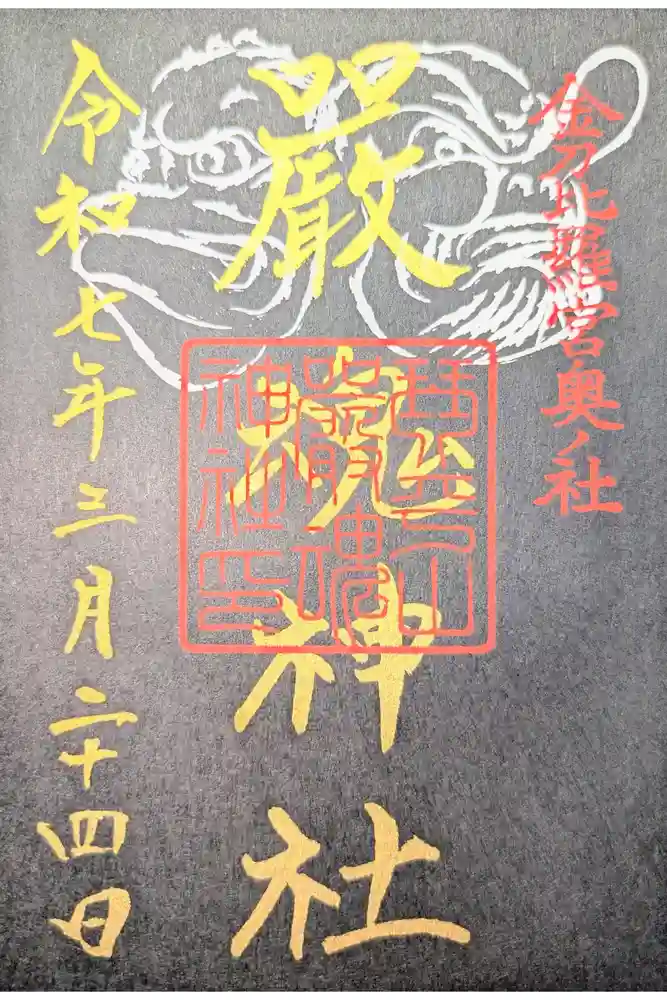 金刀比羅宮奥ノ社
嚴魂神社
琴平山
嚴魂
神社印
令和七年三月二十四日